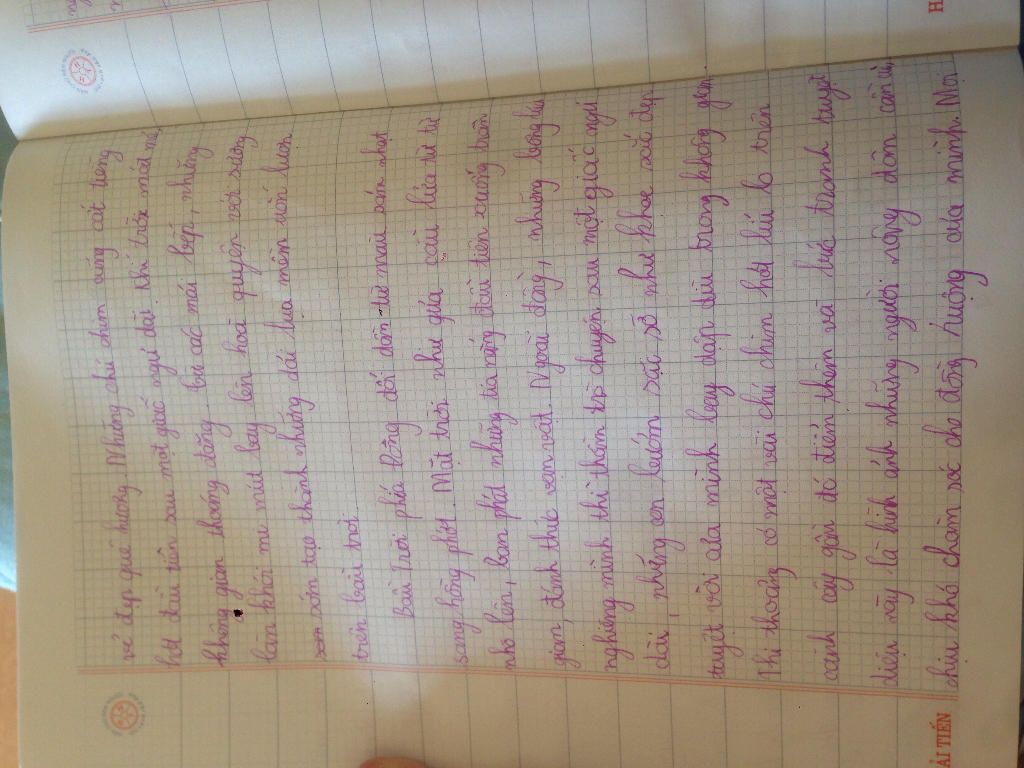 vẻ đẹp quê hương. Những chú chim cũng cất tiếng
hót đầu tiên sau một giấc ngủ dài. Khí trời mát mẻ,
không gian thoáng đãng. Từ các mái bếp, những
làn khói mù mút bay lên hoà quyện với sương
sớm tạo thành những dải lụa mềm uốn lượn
trên bầu trời.
Bầu trời phía đông đổi dần từ màu xám nhạt
sang hồng phớt. Mặt trời như quả cầu lửa từ từ
nhô lên, ban phát những tia nắng đầu tiên xuống trần
gian, đánh thức vạn vật. Ngoài đồng, những bông lúa
nghiêng mình thì thầm trò chuyện sau một giấc ngủ
dài, những con bướm sặc sỡ như khoe sắc đẹp
tuyệt vời của mình bay dập dìu trong không gian.
Thi thoảng có một vài chú chim hót líu lo trên
cành cây gần đó điểm thêm và bức tranh tuyệt
diệu này là hình ảnh những người nông dân cần cù,
chịu khó chăm sóc cho đồng ruộng của mình. Mọi
ẢI TIẾN
H